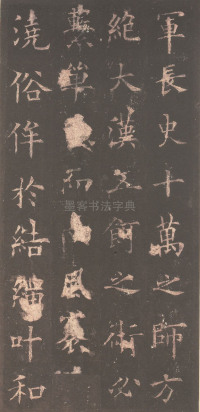 軍長史十萬之師方
絕大漢五餌之術必
葉單而風裘
澆俗侔於結繩叶和
墨客书法字典